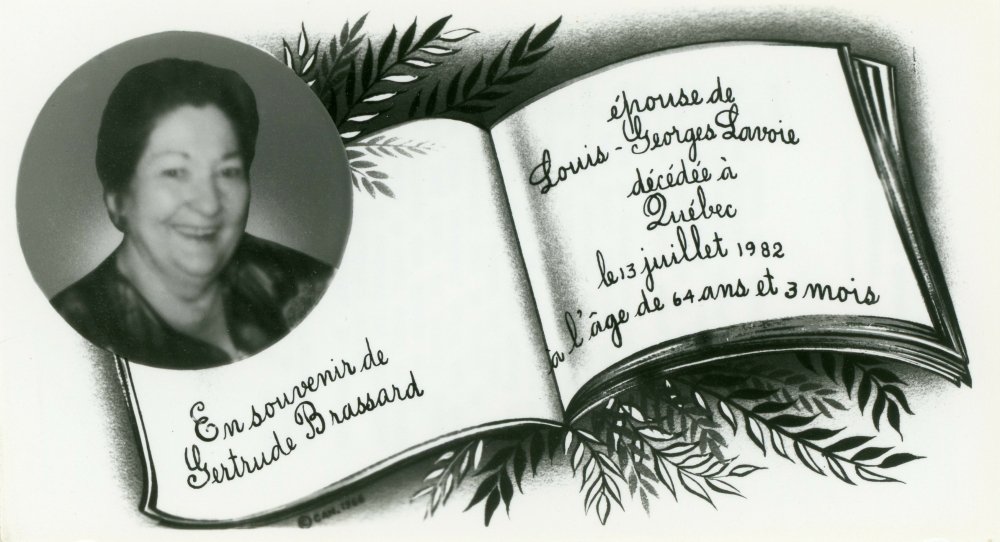 En souvenir de
Gertrude Brassard
épouse de
Louis-Georges Lavoie
décédée à
Québec
le 13 juillet 1982
à l'âge de 64 ans et 3 mois
© CAN. 1966